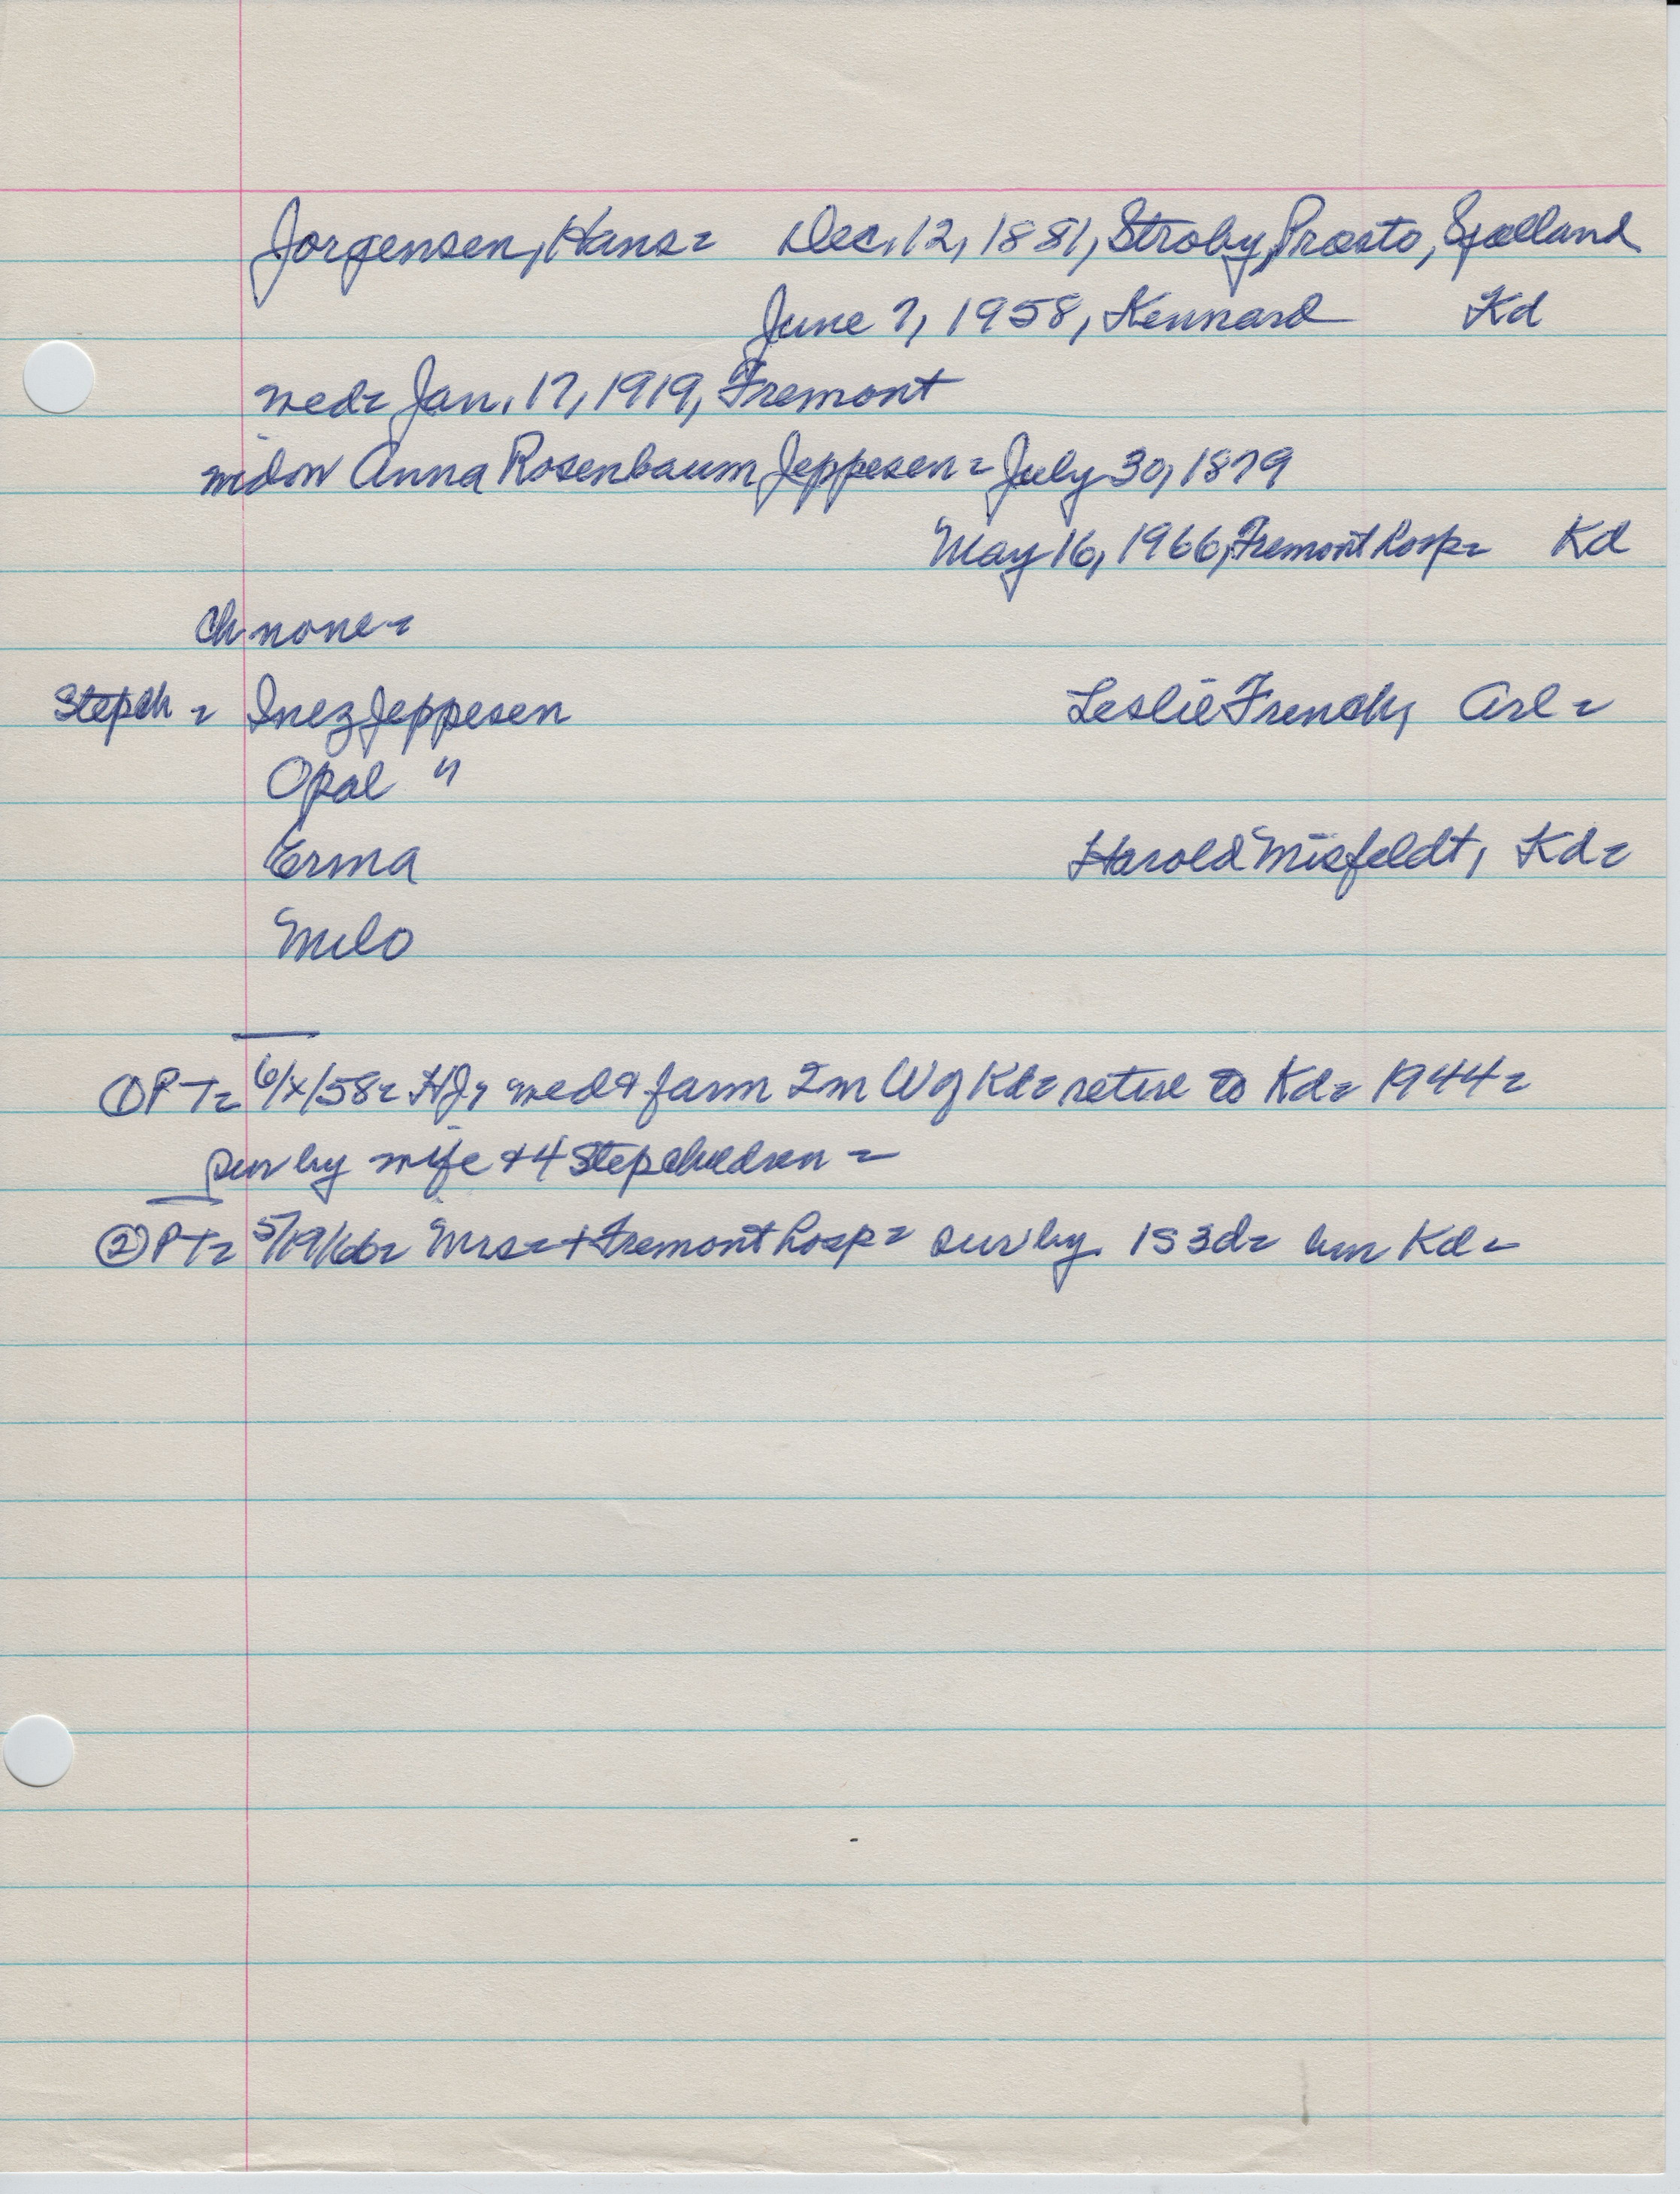 Jorgensen, Hans = Dec. 12, 1881, Stroby, Præsto, Sjælland
June 7, 1958, Kennard Kd
wed = Jan. 17, 1919, Fremont
widow Anna Rosenbaum Jeppesen = July 30, 1879
May 16, 1966, Fremont hosp = Kd
Ch none =
Stepch = Inez Jeppesen Leslie French, Arl =
Opal "
Erma Harold Misfeldt, Kd =
Milo
① PT = 6/x/58 = HJ, wed & farm 2m W of Kd = retire to Kd = 1944 =
sur by wife & 4 stepchildren =
② PT = 5/19/66 = Mrs = + Fremont hosp = sur by 1S 3d = Kd =